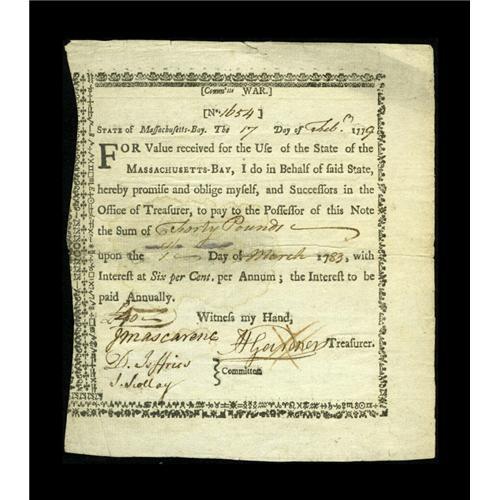 [Comm'tte WAR.]
[No. 1654]
STATE of Massachusetts-Bay. The 17 Day of Feb. 1779
FOR Value received for the Use of the State of the
MASSACHUSETTS-BAY, I do in Behalf of said State,
hereby promise and oblige myself, and Successors in the
Office of Treasurer, to pay to the Possessor of this Note
the Sum of Thorty Pounds
upon the Day of March 1783, with
Interest at Six per Cent. per Annum; the Interest to be
paid Annually.
£40 Witness my Hand,
J Mascarene HGardner Treasurer.
D. Jeffries Committee